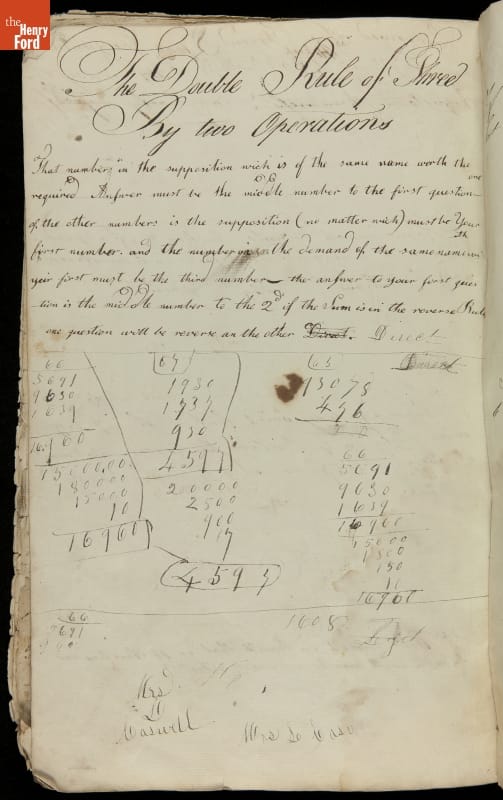 the
Henry
Ford
The Double Rule of Three
By two Operations
That numbers in the supposition wich is of the same name worth the
one
required Answer must be the middle number to the first question
of the other numbers is the supposition (no matter wich) must be Your
first number. and the number in the demand of the same name
yeir first must be the third number the answer to your first ques
tion is the middle number to the 2d if the Sum is in the reverse Rule
one question will be reverse an the other Direct. Direct
66
5691
9630
1639
16960
67
1930
1737
930
4597
200000
2500
900
17
4597
65
13078
496
66
5691
9630
1639
16960
15000
1800
150
10
16960
15000.00
180000
15000
10
16960
66
1608
Mrs
Caswell
Mrs L Casw